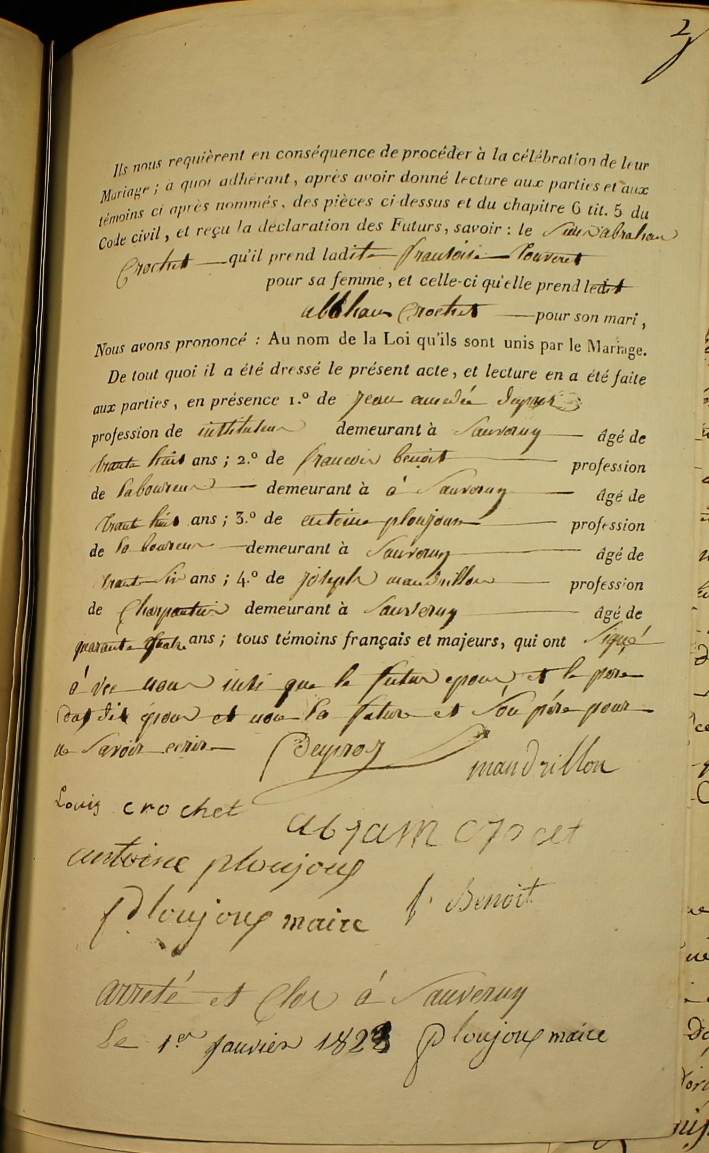 2
Ils nous requièrent en conséquence de procéder à la célébration de leur
Mariage ; à quoi adhérant, après avoir donné lecture aux parties et aux
témoins ci après nommés, des pièces ci dessus et du chapitre 6 tit. 5 du
Code civil, et reçu la déclaration des Futurs, savoir : le Sieur abraham
Crochet qu'il prend ladite françoise
pour sa femme, et celle-ci qu'elle prend ledit
abraham Crochet pour son mari,
Nous avons prononcé : Au nom de la Loi qu'ils sont unis par le Mariage.
De tout quoi il a été dressé le présent acte, et lecture en a été faite
aux parties, en présence 1.º de Jean amedée Deproz
profession de instituteur demeurant à Sauverny âgé de
trante huit ans ; 2.º de francois benoit profession
de laboureur demeurant à à Sauverny âgé de
trant huit ans ; 3.º de antoine ploujoux profession
de laboureur demeurant à Sauverny âgé de
trant Six ans ; 4.º de joseph mandrillon profession
de Charpentier demeurant à Sauverny âgé de
quarante quatre ans ; tous témoins français et majeurs, qui ont Signé
avec nous insi que le futur epoux et le pere
dudit époux et non la future et Son pére pour
ne Savoir ecrire Deproz
mandrillon
Louis crochet
abram crocet
antoine ploujoux
Ploujoux maire f. Benoit
arreté et Clos à Sauverny
Le 1er Janvier 1823 Ploujoux maire